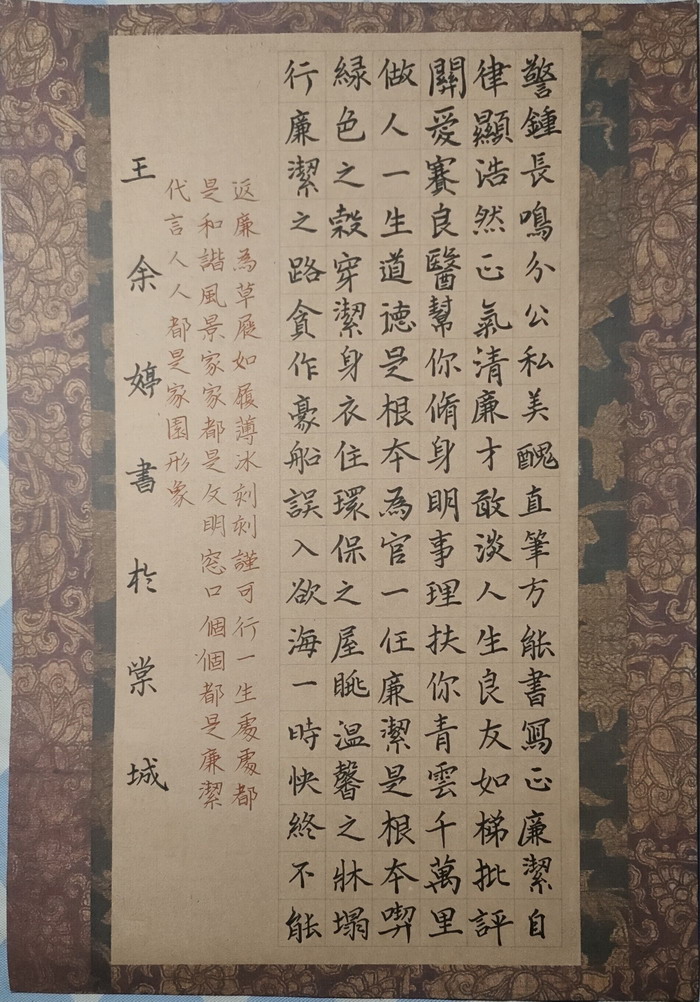 警鍾長鳴分公私美醜直筆方能書寫正廉潔自
律顯浩然正氣清廉才敢淡人生良友如梯批評
關愛賽良醫幫你脩身明事理扶你青雲千萬里
做人一生道德是根本為官一任廉潔是根本喫
緑色之穀穿潔身衣住環保之屋眺温馨之牀塌
行廉潔之路貪作豪船誤入欲海一時快終不能
返廉為草屐如履薄冰刻刻謹可行一生處處都
是和諧風景家家都是文明窓口個個都是廉潔
代言人人都是家園形象
王余婷書於棠城